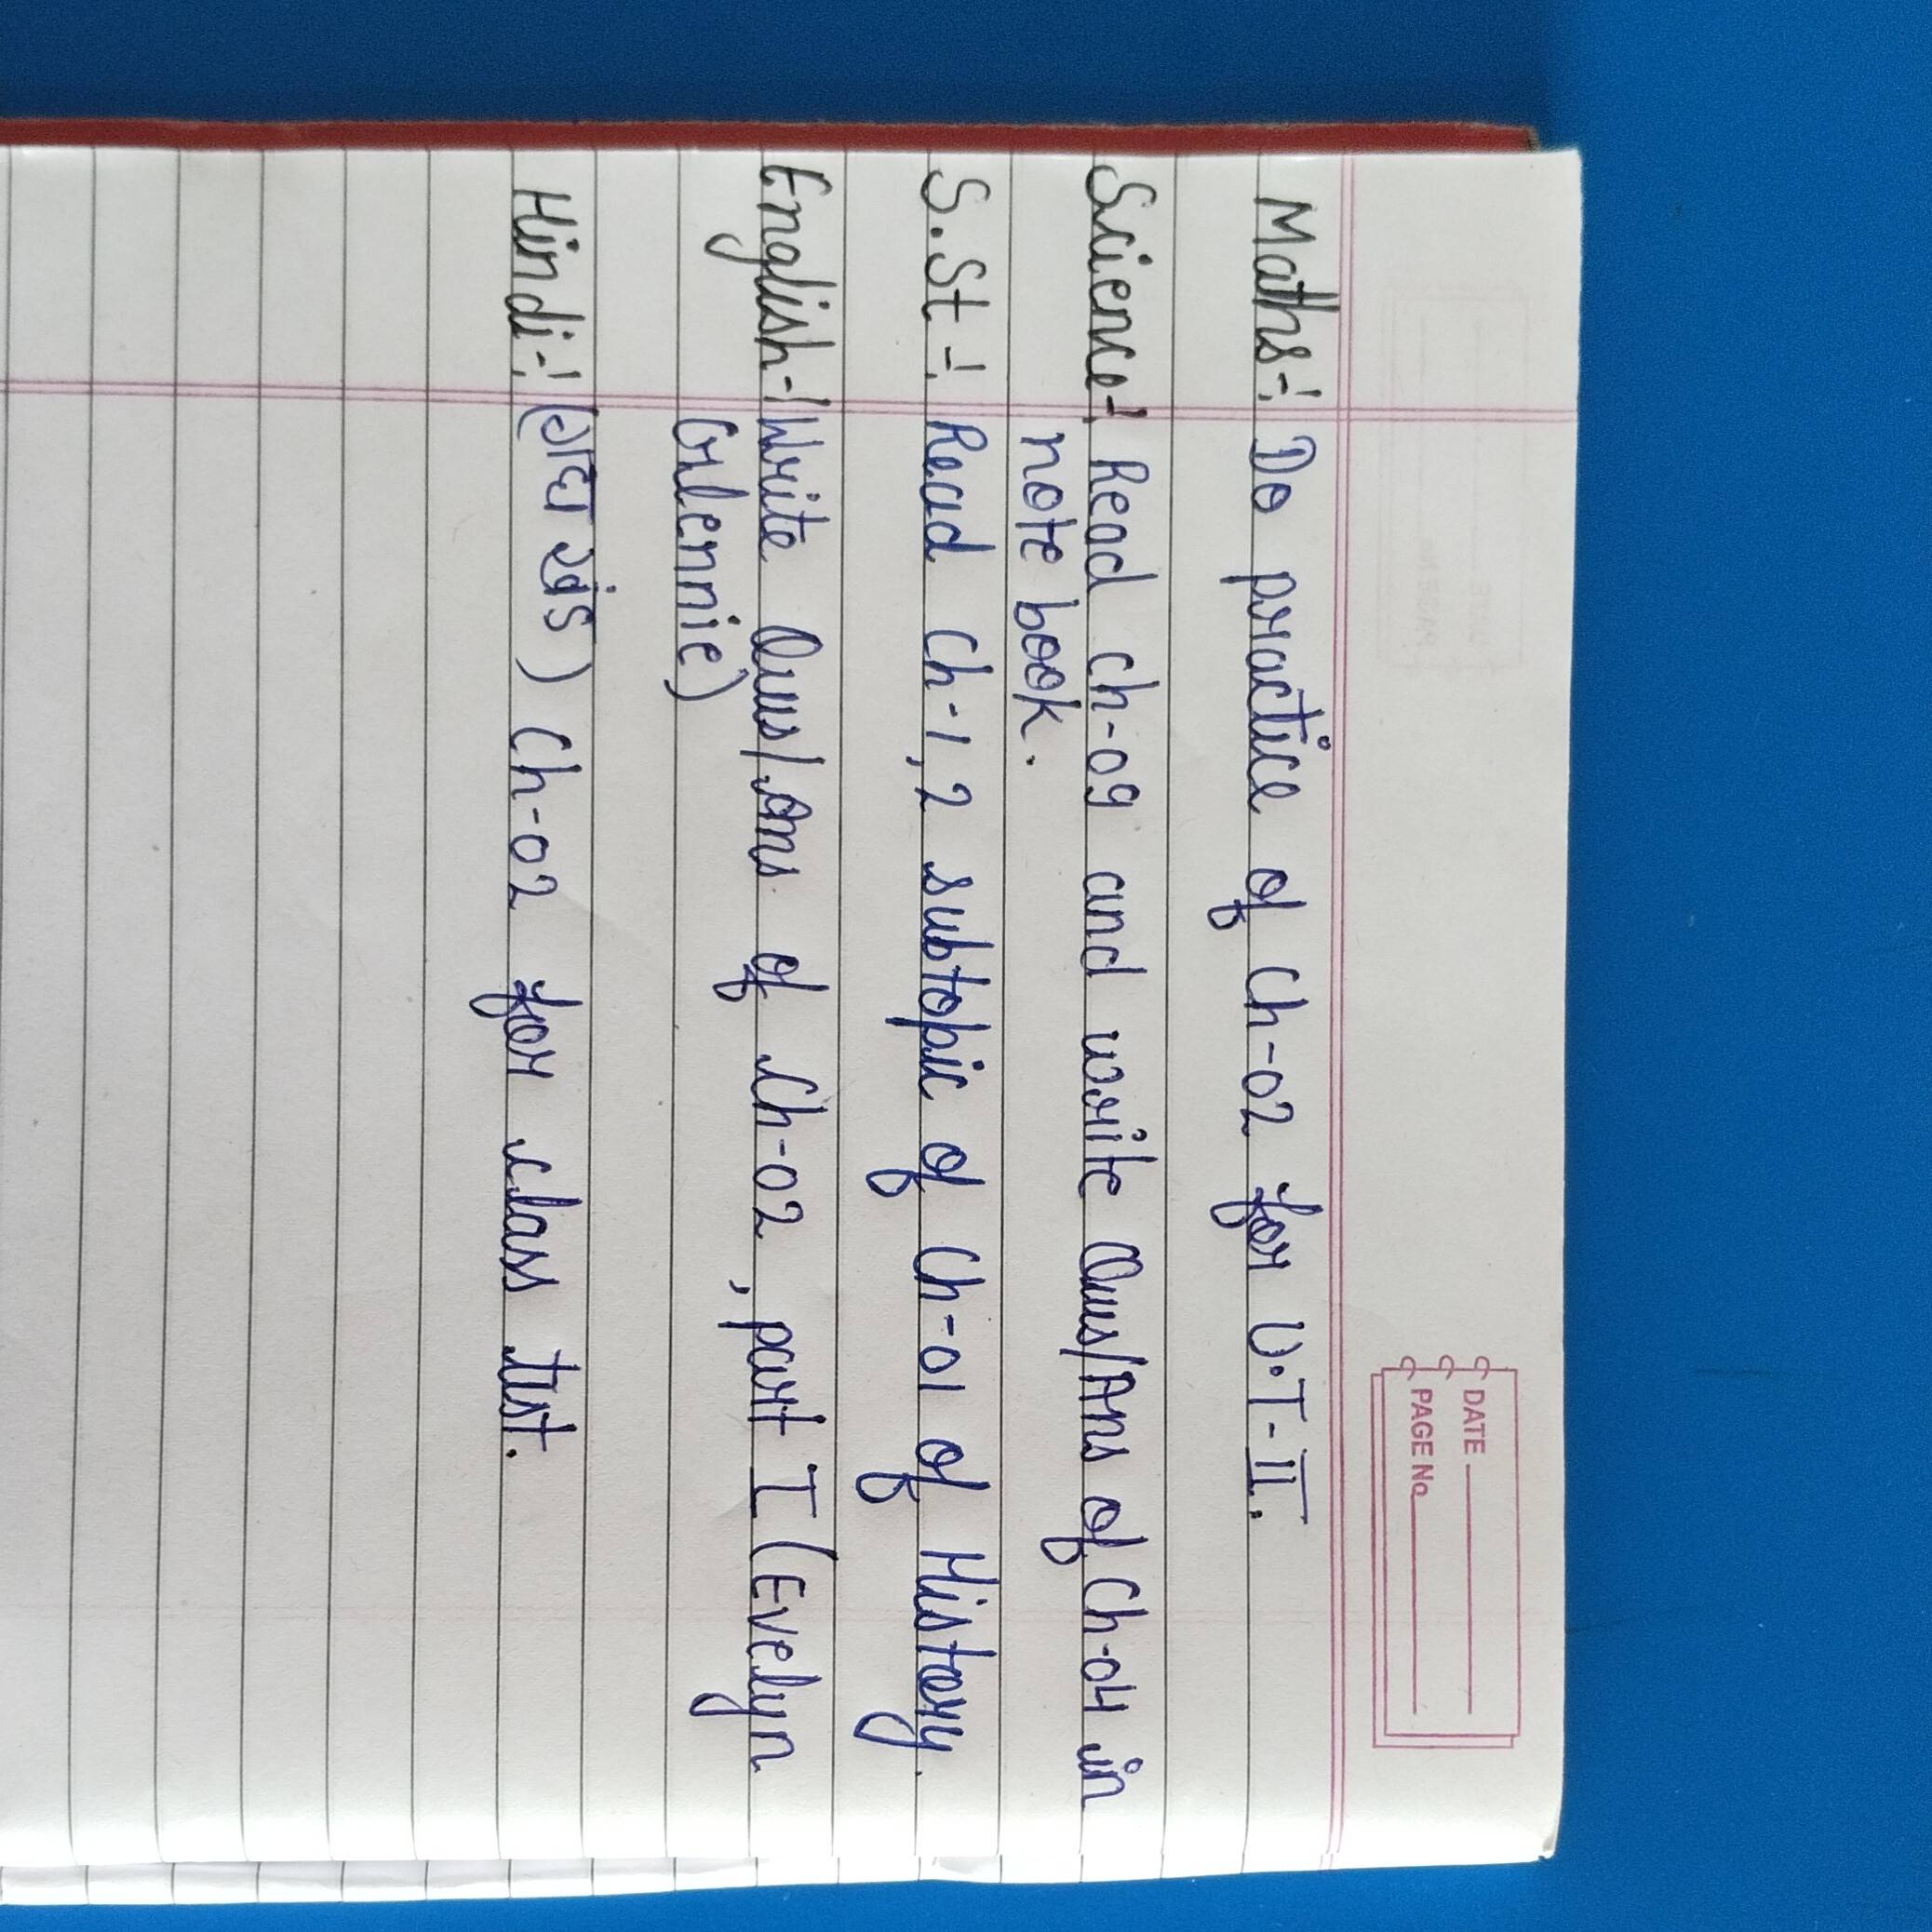 DATE
PAGE No
Maths:- Do practice of Ch-02 for U.T-II.
Science:- Read Ch-09 and write Qus/Ans of Ch-04 in
note book.
S.St:- Read Ch-1,2 subtopic of Ch-01 of History.
English:- Write Qus/Ans of Ch-02, part I (Evelyn
Glennie)
Hindi:- (गद्य खंड) Ch-02 for class test.